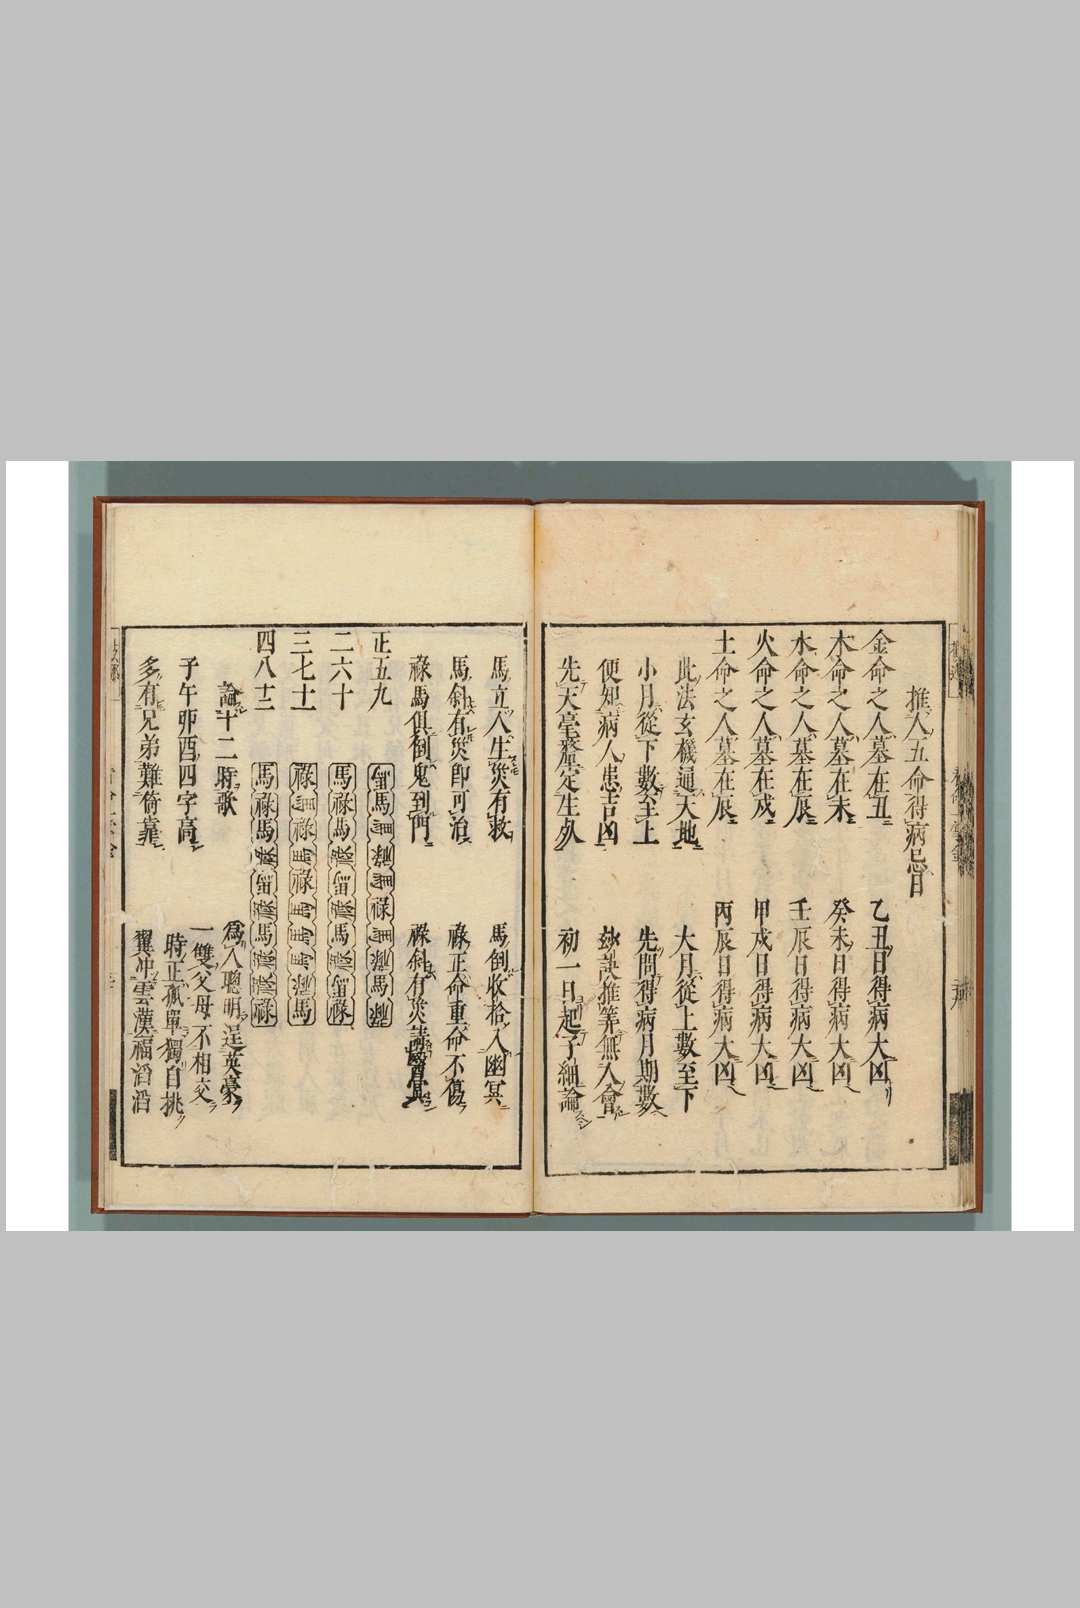 推人五命得病忌日
金命之人墓在丑 乙丑日得病大凶
木命之人墓在未 癸未日得病大凶
水命之人墓在辰 壬辰日得病大凶
火命之人墓在戌 甲戌日得病大凶
土命之人墓在辰 丙辰日得病大凶
此法玄機通天地 大月從上數至下
小月從下數至上 先問得病月期數
便知病人患吉凶 玅訣推筭無人會
先天毫釐定生死 初一日起子細論
馬立人生災有救 馬倒收拾入幽冥
馬斜有災即可治 祿正命重命不傷
祿馬俱倒鬼到門 祿斜有災請醫
正五九
二六十 馬祿馬
三七十一
四八十二 馬祿馬
論十二時歌 爲人聰明逞英豪
子午卯酉四字高 一雙父母不相交
時正孤單獨自挑
多有兄弟難倚靠 翼冲雲漢福滔滔